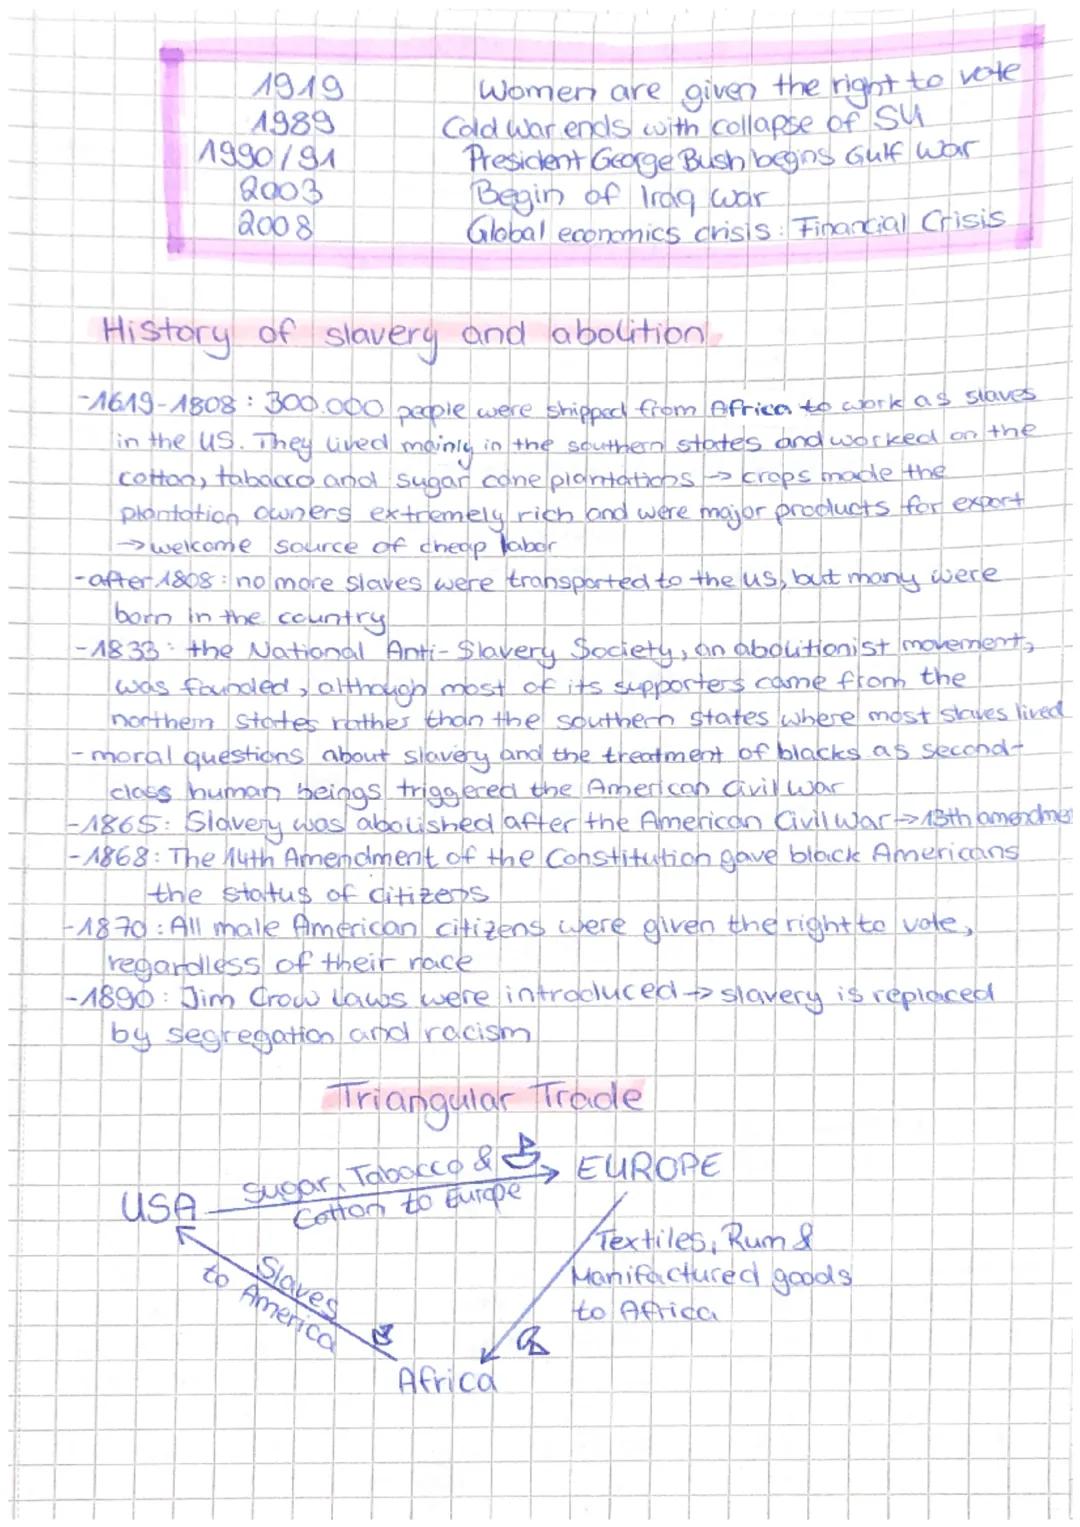 1919 Women are given the right to vote
1989 Cold War ends with collapse of SU
1990/91 President George Bush begins Gulf War
2003 Begin of Iraq war
2008 Global economics crisis: Financial Crisis
History of slavery and abolition
-1619-1808: 300.000 people were shipped from Africa to work as slaves
in the US. They lived mainly in the southern states and worked on the
cotton, tabacco and sugar cane plantations → crops made the
plantation owners extremely rich and were major products for export
→ welcome source of cheap labor
-after 1808: no more slaves were transported to the US, but many were
born in the country
-1833: the National Anti-Slavery Society, an abolitionist movement,
was founded, although most of its supporters came from the
northern states rather than the southern states where most slaves lived
-moral questions about slavery and the treatment of blacks as second-
class human beings triggered the American Civil War
-1865: Slavery was abolished after the American Civil War → 13th amendmen
-1868: The 14th Amendment of the Constitution gave black Americans
the status of citizens
-1870: All male American citizens were given the right to vote,
regardless of their race
-1890: Jim Crow Laws were introduced → slavery is replaced
by segregation and racism
Triangular Trade
Sugar, Tabacco & EUROPE
USA Cotton to Europe
Textiles, Rum &
Slaves Manifactured goods
to America to Africa
Africa